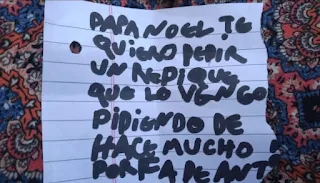 PAPA NOEL TE
QUIERO PEDIR
UN REPIQUE
QUE LO VENGO
PIDIENDO DE
HACE MUCHO
PORFA DE ANT